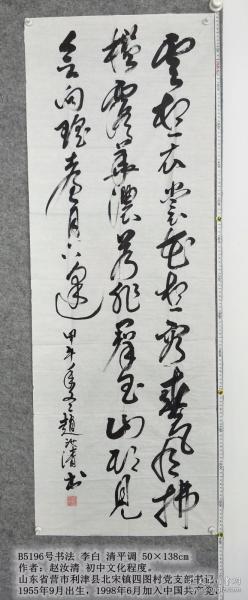 云想衣裳花想容春风拂
槛露华浓若非群玉山头见
会向瑶台月下逢
甲午年冬赵汝清书
B5196号书法 李白 清平调 50×138cm
作者：赵汝清 初中文化程度，
山东省营市利津县北宋镇四图村党支部书记，
1955年9月出生，1998年6月加入中国共产党，